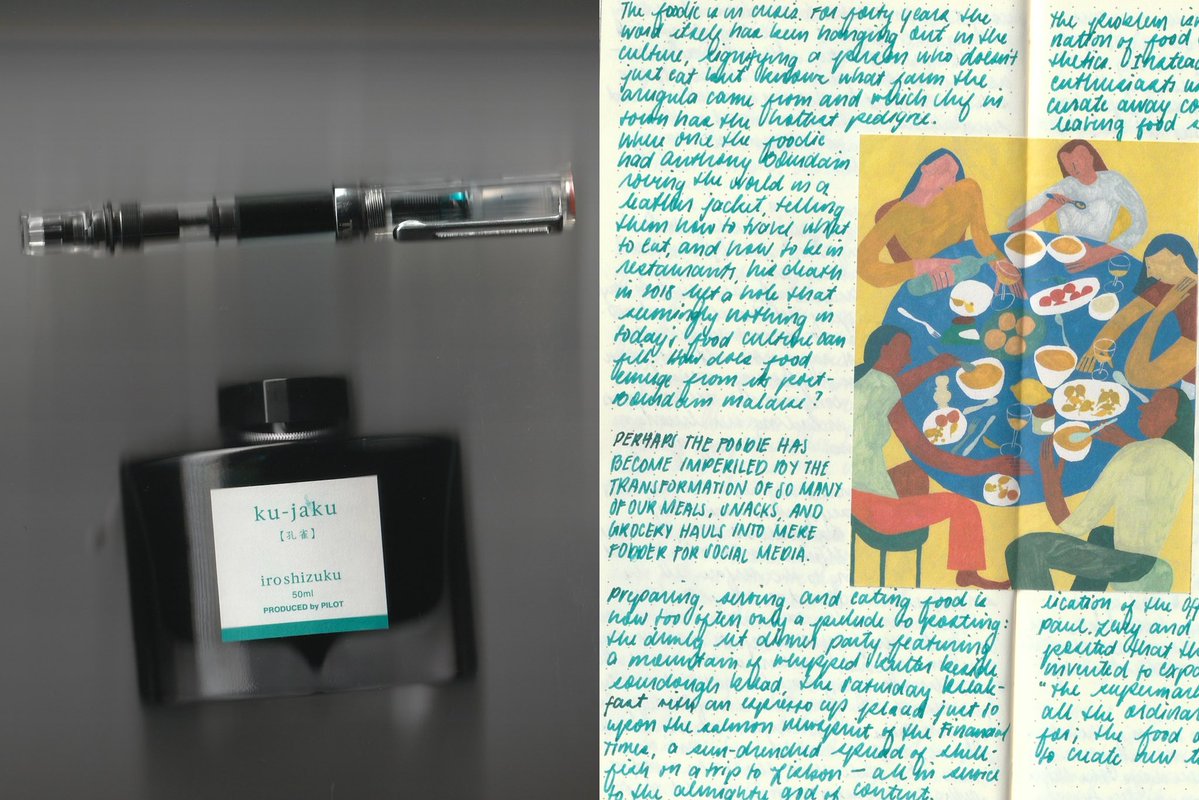 ku-jaku
【孔雀】
iroshizuku
50ml
PRODUCED by PILOT
The foodie is in crisis. For forty years the
word itself has been hanging out in the
culture, signifying a person who doesn't
just eat but knows what farm the
arugula came from and which chef in
town has the hottest pedigree.
Where once the foodie
had Anthony Bourdain
roving the world in a
leather jacket, telling
them how to travel, what
to eat, and how to be in
restaurants, his death
in 2018 left a hole that
seemingly nothing in
today's food culture can
fill. How does food
emerge from its post-
Bourdain malaise?
PERHAPS THE FOODIE HAS
BECOME IMPERILED BY THE
TRANSFORMATION OF SO MANY
OF OUR MEALS, SNACKS, AND
GROCERY HAULS INTO MERE
FODDER FOR SOCIAL MEDIA.
Preparing, serving, and eating food is
now too often only a prelude to posting:
the dimly lit dinner party featuring
a mountain of whipped butter beside
sourdough bread, the Saturday break-
fast with an espresso cup placed just so
upon the salmon newsprint of the Financial
Times, a sun-drenched spread of shell-
fish on a trip to Lisbon — all in service
to the almighty god of content.
the problem is
nation of food
thetics. Instead
enthusiasts
curate away
leaving food
lication of the
Paul Levy and
posited that
invented to
"the
all the
for; the food
to create new